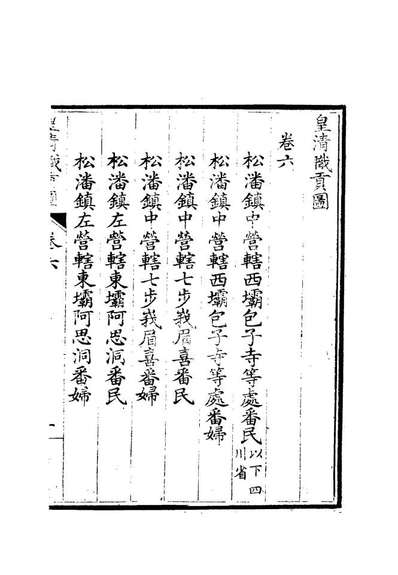 皇清職貢圖
卷六
松潘鎮中營轄西壩包子寺等處番民以下四川省
松潘鎮中營轄西壩包子寺等處番婦
松潘鎮中營轄七步峩眉喜番民
松潘鎮中營轄七步峩眉喜番婦
松潘鎮左營轄東壩阿思洞番民
松潘鎮左營轄東壩阿思洞番婦
皇清職貢圖
卷六
一